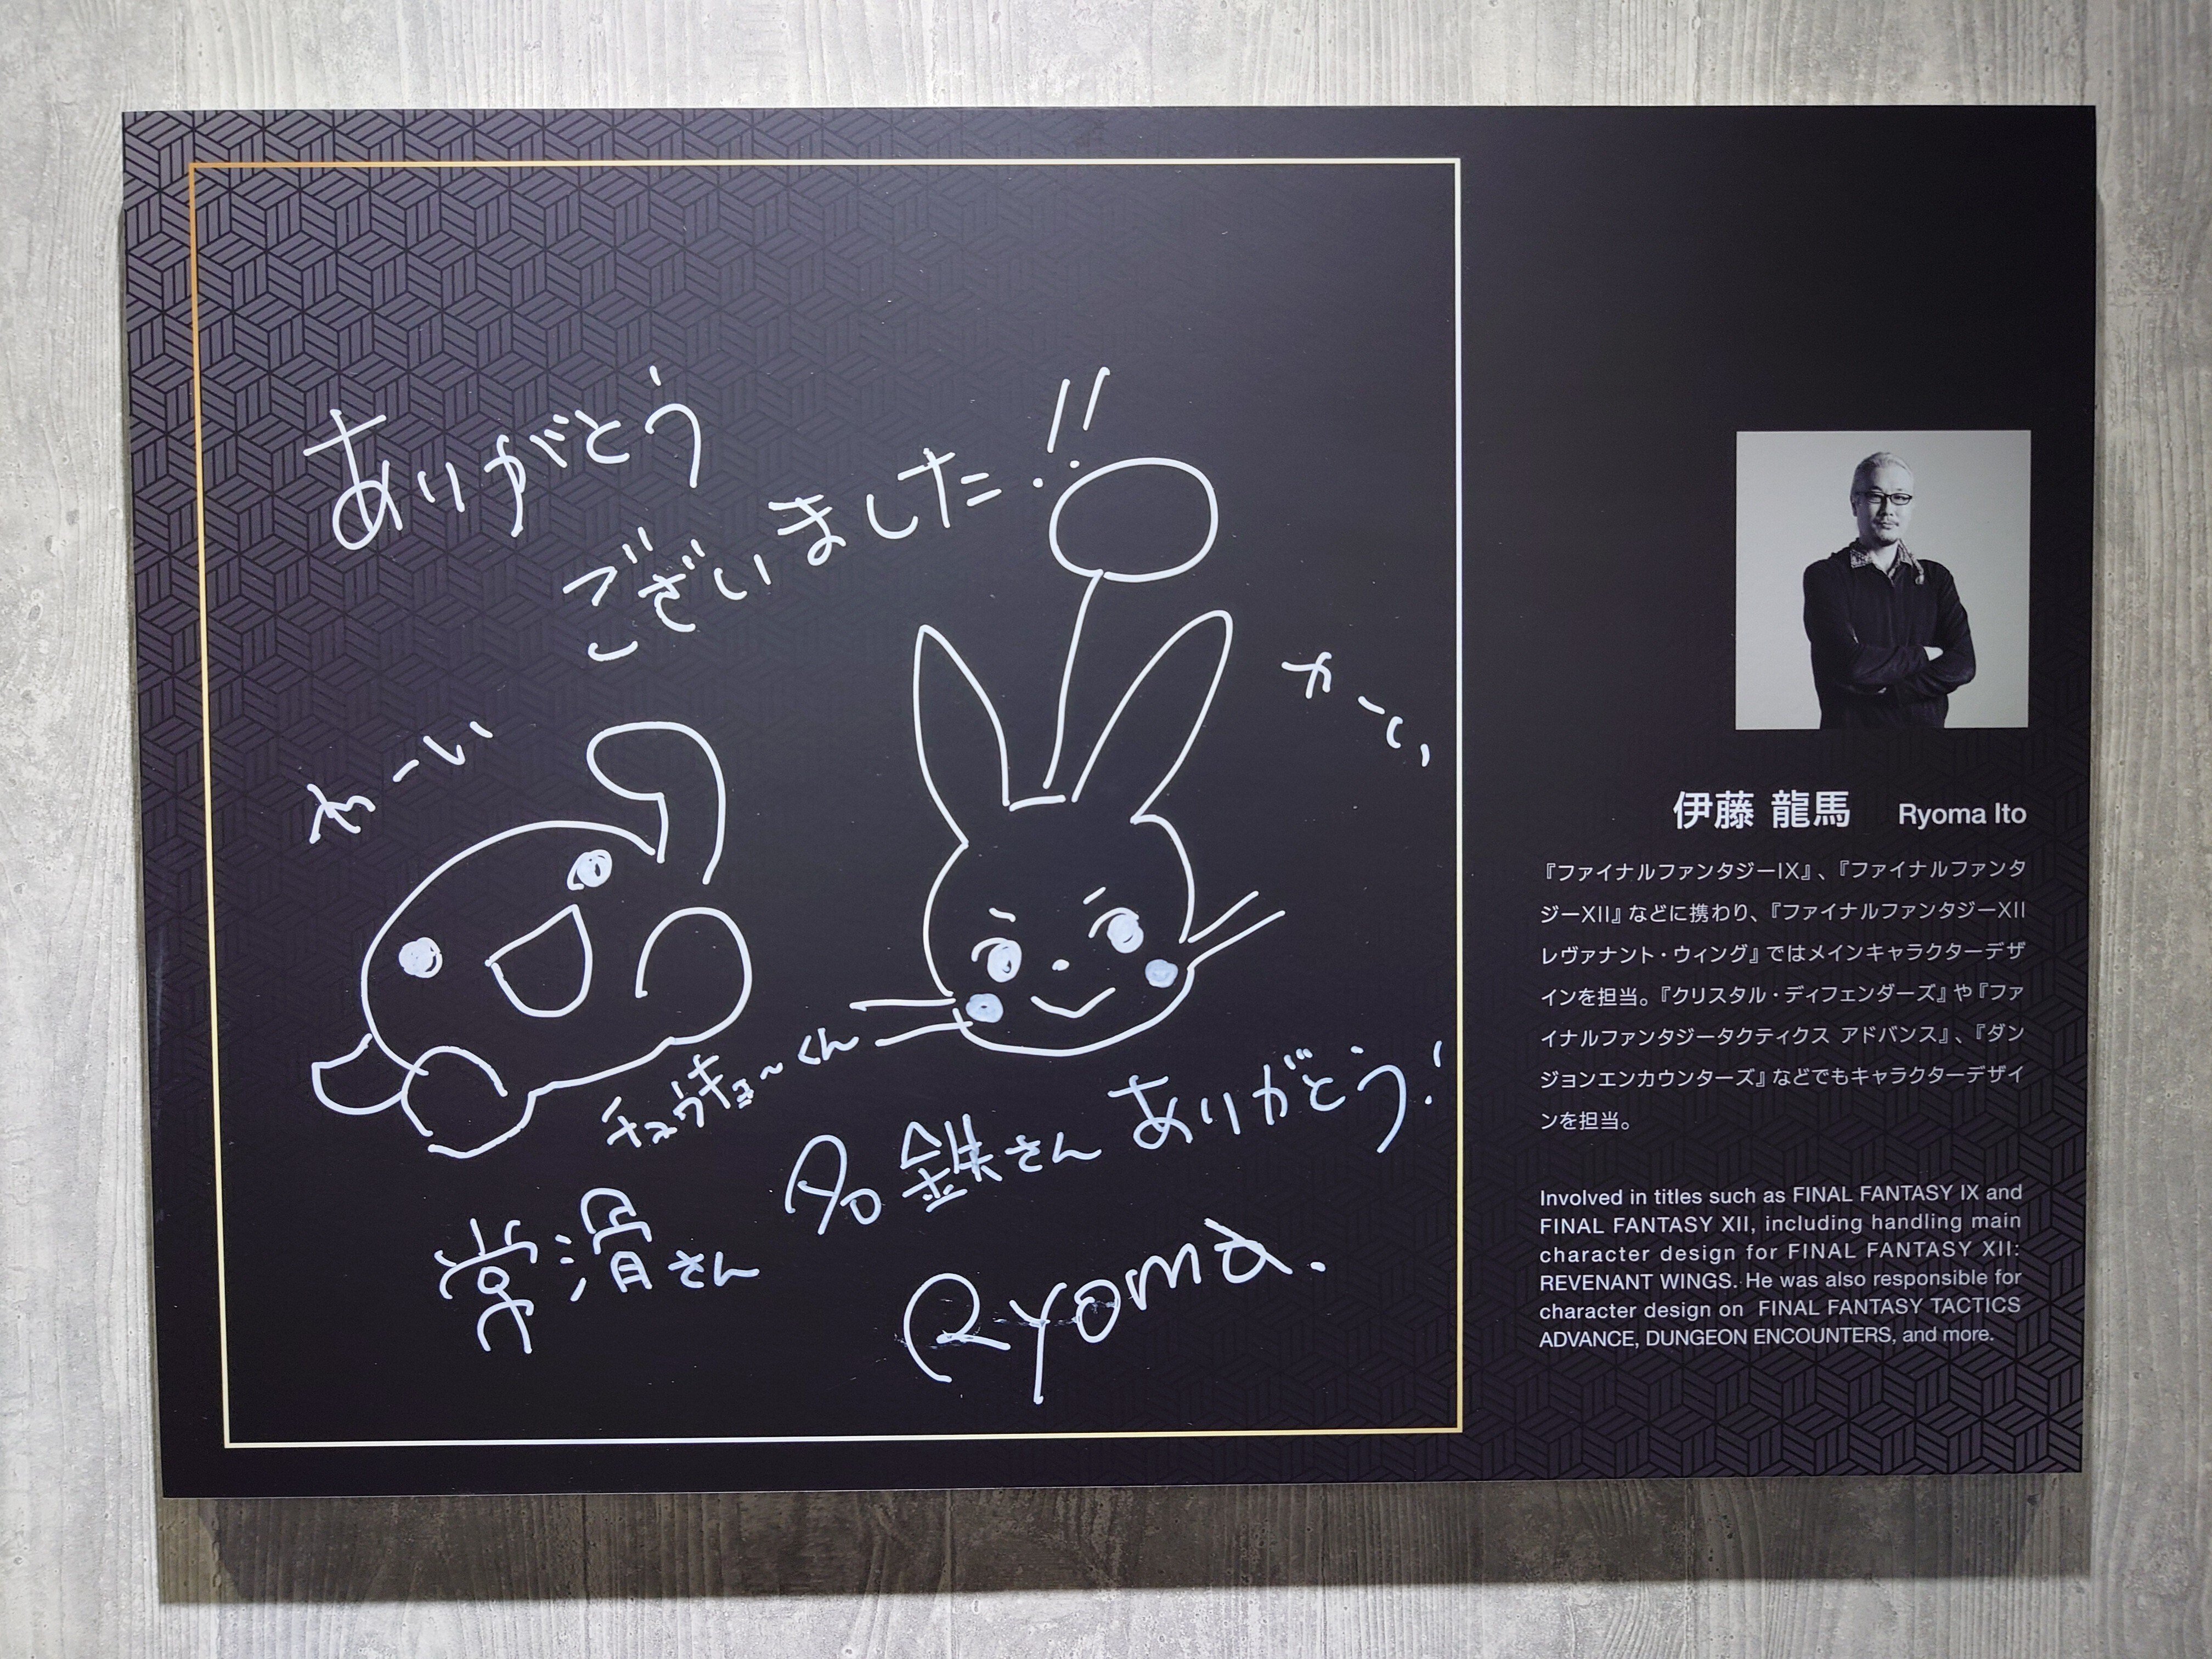 ありがとう
ございました!!
わーい
わーい
チュウキョ〜くん
名鉄さん ありがとう!
常滑さん
Ryoma.
伊藤 龍馬 Ryoma Ito
『ファイナルファンタジーIX』、『ファイナルファンタ
ジーXII』などに携わり、『ファイナルファンタジーXII
レヴァナント・ウィング』ではメインキャラクターデザ
インを担当。『クリスタル・ディフェンダーズ』や『ファ
イナルファンタジータクティクス アドバンス』、『ダン
ジョンエンカウンターズ』などでもキャラクターデザイ
ンを担当。
Involved in titles such as FINAL FANTASY IX and
FINAL FANTASY XII, including handling main
character design for FINAL FANTASY XII:
REVENANT WINGS. He was also responsible for
character design on FINAL FANTASY TACTICS
ADVANCE, DUNGEON ENCOUNTERS, and more.